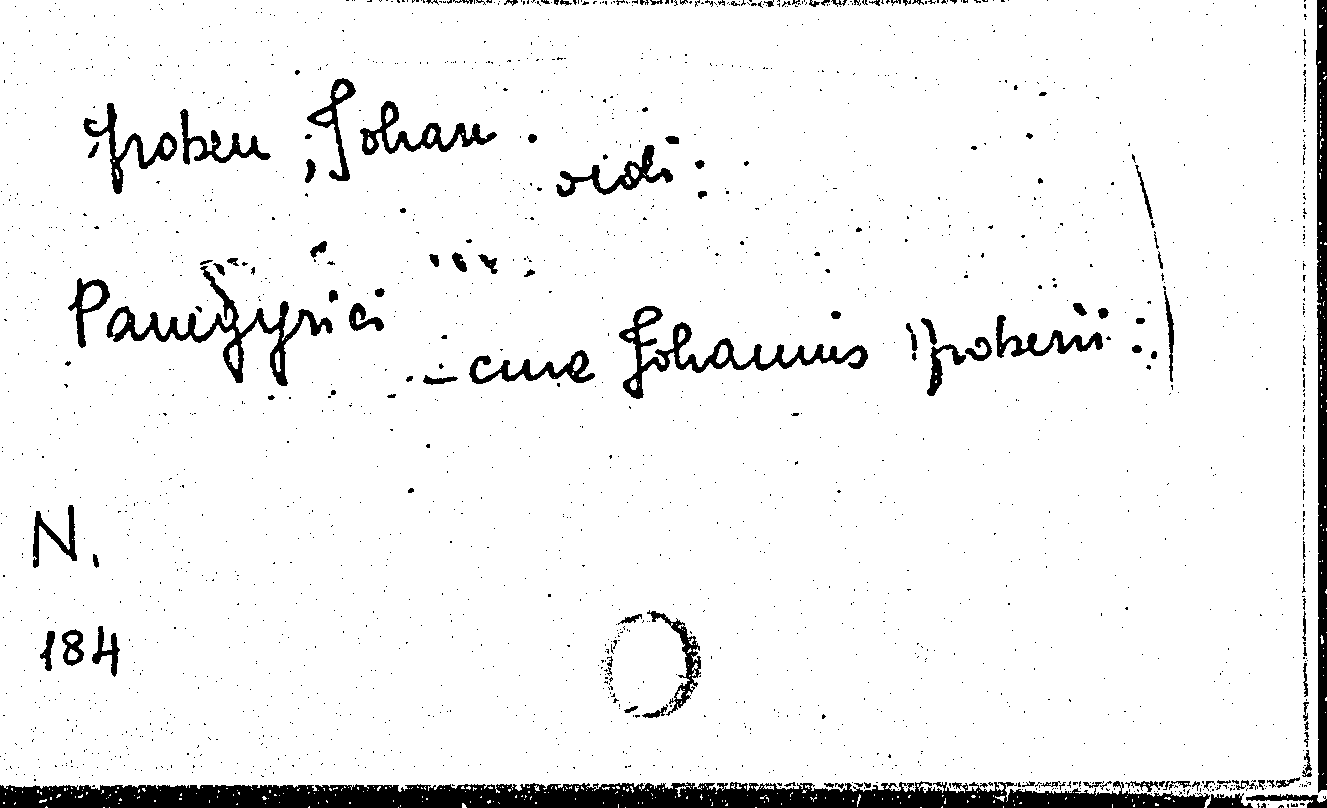 Froben, Johan.
vidi:
Panegyrici
- cura Johannis Frobenii:
N.
184